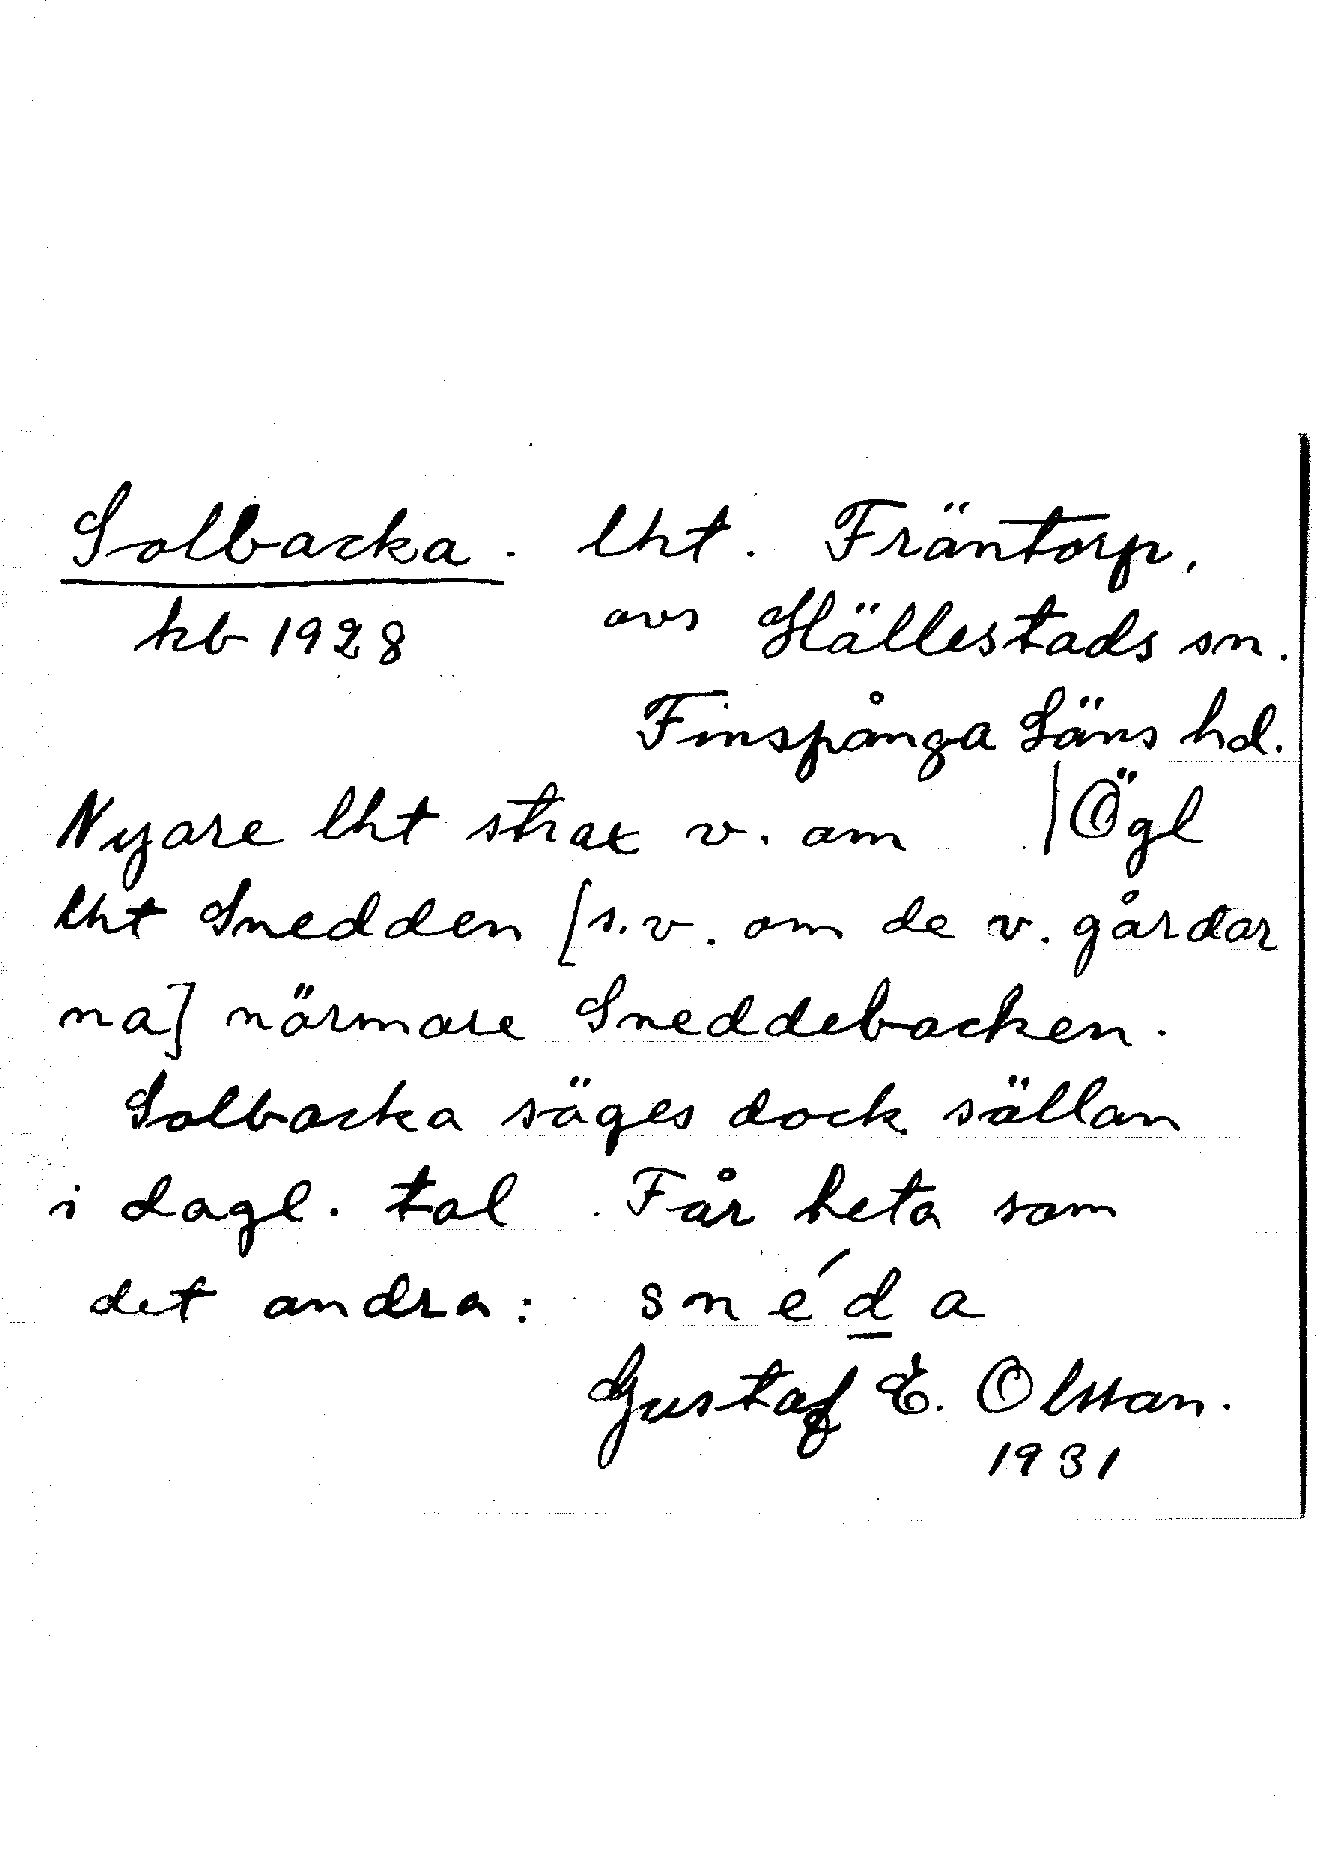 Solbacka. lht. Fräntorp,
kb 1928 avs Hällestads sn.
Finspånga Läns hd.
Nyare lht strax v. om | Ögl
lht Snedden [s.v. om de v. gårdar
na] närmare Sneddebacken.
Solbacka säges dock sällan
i dagl. tal. Får heta som
det andra: snéda
Gustaf E. Olsson.
1931